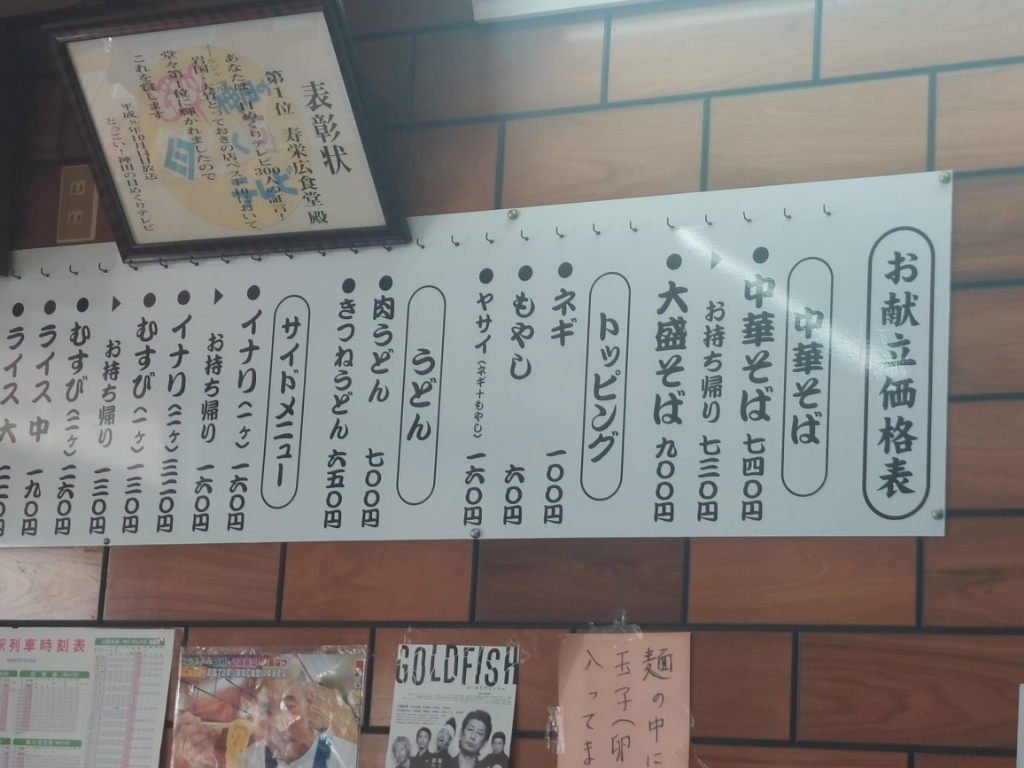 表彰状
第1位 寿栄広食堂殿
堂々第1位に輝かれましたので
これを賞します
平成8年10月1日放送
どっこい!神田の日めくりテレビ
お献立価格表
中華そば
●中華そば 七四〇円
▶お持ち帰り 七三〇円
●大盛そば 九〇〇円
トッピング
●ネギ 一〇〇円
●もやし 六〇円
●ヤサイ(ネギ+もやし) 一六〇円
うどん
●肉うどん 七〇〇円
●きつねうどん 六五〇円
サイドメニュー
●イナリ(一ヶ) 一六〇円
▶お持ち帰り 一六〇円
●イナリ(二ヶ) 三二〇円
●むすび(一ヶ) 一三〇円
▶お持ち帰り 一三〇円
●むすび(二ヶ) 二六〇円
●ライス 中 一九〇円
●ライス 大 二二〇円
列車時刻表
GOLDFISH
麺の中に
玉子(卵
入ってま